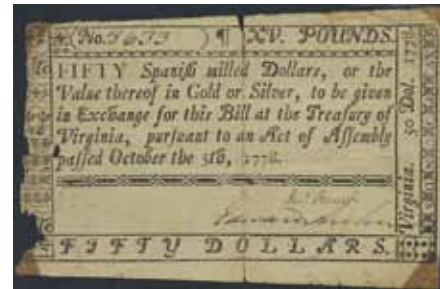 (No. 5633) ¶ XV. POUNDS.
FIFTY Spaniſh milled Dollars, or the
Value thereof in Gold or Silver, to be given
in Exchange for this Bill at the Treaſury of
Virginia, purſuant to an Act of Aſſembly
paſſed October the 5th, 1778.
FIFTY DOLLARS.
Virginia. 50 Dol. 1778.